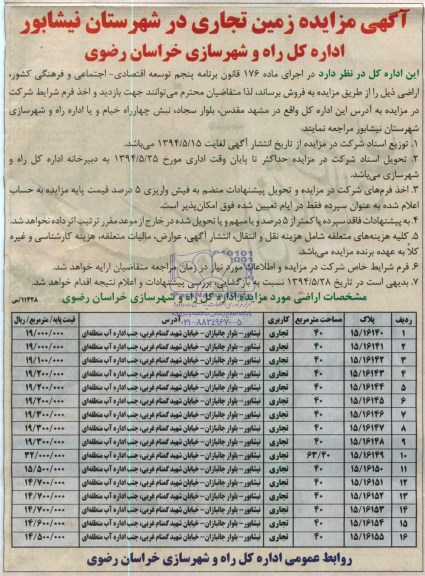 آگهی مزایده زمین تجاری در شهرستان نیشابور
اداره کل راه و شهرسازی خراسان رضوی
این اداره کل در نظر دارد در اجرای ماده ۱۷۶ قانون برنامه پنجم توسعه اقتصادی- اجتماعی و فرهنگی کشور،
اراضی ذیل را از طریق مزایده به فروش برساند، لذا متقاضیان محترم می‌توانند جهت بازدید و اخذ فرم شرایط شرکت
در مزایده به آدرس این اداره کل واقع در مشهد مقدس، بلوار سجاد، نبش چهارراه خیام و یا اداره راه و شهرسازی
شهرستان نیشابور مراجعه نمایند.
۱. توزیع اسناد شرکت در مزایده از تاریخ انتشار آگهی لغایت ۱۳۹۴/۵/۱۵ می‌باشد.
۲. تحویل اسناد شرکت در مزایده حداکثر تا پایان وقت اداری مورخ ۱۳۹۴/۵/۲۵ به دبیرخانه اداره کل راه و
شهرسازی می‌باشد.
۳. اخذ فرم‌های شرکت در مزایده و تحویل پیشنهادات منضم به فیش واریزی ۵ درصد قیمت پایه مزایده به حساب
اعلام شده به عنوان سپرده فقط در ایام تعیین شده فوق امکان‌پذیر است.
۴. به پیشنهادات فاقد سپرده یا کمتر از ۵ درصد و یا مبهم و یا تحویل شده در خارج از موعد مقرر ترتیب اثر داده نخواهد شد.
۵. کلیه هزینه‌های متعلقه شامل هزینه نقل و انتقال، انتشار آگهی، عوارض، مالیات متعلقه، هزینه کارشناسی و غیره
کلاً به عهده برنده مزایده می‌باشد.
۶. فرم شرایط خاص شرکت در مزایده و اطلاعات مورد نیاز در زمان مراجعه متقاضیان ارایه خواهد شد.
۷. بدیهی است در تاریخ ۱۳۹۴/۵/۲۸ نسبت به بازگشایی، بررسی پیشنهادات و اعلام نتیجه اقدام خواهد شد.
مشخصات اراضی مورد مزایده اداره کل راه و شهرسازی خراسان رضوی ۱۱۴۲۸/ص
۰۲۱-۸۸۳۴۹۶۷۰-۵
ردیف پلاک مساحت مترمربع کاربری آدرس قیمت پایه/ مترمربع / ریال
۱ ۱۵/۱۶۱۴۰ ۴۰ تجاری نیشابور- بلوار جانبازان- خیابان شهید گمنام غربی، جنب اداره آب منطقه‌ای ۱۹/۰۰۰/۰۰۰
۲ ۱۵/۱۶۱۴۱ ۴۰ تجاری نیشابور- بلوار جانبازان- خیابان شهید گمنام غربی، جنب اداره آب منطقه‌ای ۱۹/۰۰۰/۰۰۰
۳ ۱۵/۱۶۱۴۲ ۴۰ تجاری نیشابور- بلوار جانبازان- خیابان شهید گمنام غربی، جنب اداره آب منطقه‌ای ۱۹/۱۰۰/۰۰۰
۴ ۱۵/۱۶۱۴۳ ۴۰ تجاری نیشابور- بلوار جانبازان- خیابان شهید گمنام غربی، جنب اداره آب منطقه‌ای ۱۹/۲۰۰/۰۰۰
۵ ۱۵/۱۶۱۴۴ ۴۰ تجاری نیشابور- بلوار جانبازان- خیابان شهید گمنام غربی، جنب اداره آب منطقه‌ای ۱۹/۲۰۰/۰۰۰
۶ ۱۵/۱۶۱۴۵ ۴۰ تجاری نیشابور- بلوار جانبازان- خیابان شهید گمنام غربی، جنب اداره آب منطقه‌ای ۱۹/۲۰۰/۰۰۰
۷ ۱۵/۱۶۱۴۶ ۴۰ تجاری نیشابور- بلوار جانبازان- خیابان شهید گمنام غربی، جنب اداره آب منطقه‌ای ۱۹/۳۰۰/۰۰۰
۸ ۱۵/۱۶۱۴۷ ۴۰ تجاری نیشابور- بلوار جانبازان- خیابان شهید گمنام غربی، جنب اداره آب منطقه‌ای ۱۹/۳۰۰/۰۰۰
۹ ۱۵/۱۶۱۴۸ ۴۰ تجاری نیشابور- بلوار جانبازان- خیابان شهید گمنام غربی، جنب اداره آب منطقه‌ای ۱۹/۳۰۰/۰۰۰
۱۰ ۱۵/۱۶۱۴۹ ۶۳/۴۰ تجاری نیشابور- بلوار جانبازان- خیابان شهید گمنام غربی، جنب اداره آب منطقه‌ای ۳۲/۰۰۰/۰۰۰
۱۱ ۱۵/۱۶۱۵۰ ۴۰ تجاری نیشابور- بلوار جانبازان- خیابان شهید گمنام غربی، جنب اداره آب منطقه‌ای ۱۵/۵۰۰/۰۰۰
۱۲ ۱۵/۱۶۱۵۱ ۴۰ تجاری نیشابور- بلوار جانبازان- خیابان شهید گمنام غربی، جنب اداره آب منطقه‌ای ۱۴/۷۰۰/۰۰۰
۱۳ ۱۵/۱۶۱۵۲ ۴۰ تجاری نیشابور- بلوار جانبازان- خیابان شهید گمنام غربی، جنب اداره آب منطقه‌ای ۱۴/۷۰۰/۰۰۰
۱۴ ۱۵/۱۶۱۵۳ ۴۰ تجاری نیشابور- بلوار جانبازان- خیابان شهید گمنام غربی، جنب اداره آب منطقه‌ای ۱۴/۷۰۰/۰۰۰
۱۵ ۱۵/۱۶۱۵۴ ۴۰ تجاری نیشابور- بلوار جانبازان- خیابان شهید گمنام غربی، جنب اداره آب منطقه‌ای ۱۴/۶۰۰/۰۰۰
۱۶ ۱۵/۱۶۱۵۵ ۴۰ تجاری نیشابور- بلوار جانبازان- خیابان شهید گمنام غربی، جنب اداره آب منطقه‌ای ۱۴/۵۰۰/۰۰۰
روابط عمومی اداره کل راه و شهرسازی خراسان رضوی